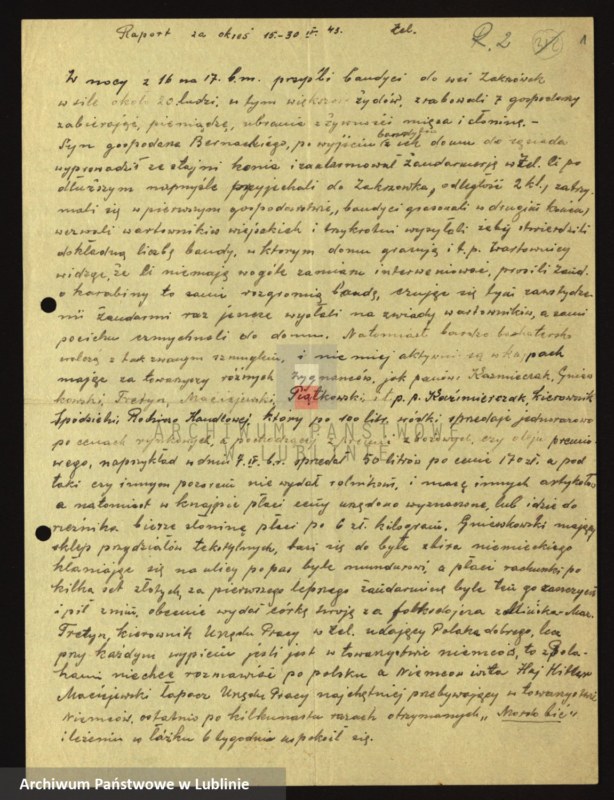 Raport za okres 15.-30 IV. 43. Żel. R. 2 1
W nocy z 16 na 17. b.m. przyśli bandyci do wsi Zakrzówek
w sile około 20 ludzi, w tym większość żydów, zrabowali 7 gospodarzy
zabierając, pieniądze, ubranie żywność mięsa i słoninę. –
Syn gospodarza Bernackiego, po wyjściu bandytów z ich domu do sąsiada
wyprowadził ze stajni konia i zaalarmował żandarmerię w Żel. Ci po
dłuższym namyśle przyjechali do Zakrzówka, odległość 2 kl., zatrzy-
mali się w pierwszym gospodarstwie, bandyci grasowali w drugim końcu,
wezwali wartowników wiejskich i trzykrotnie wysyłali żeby stwierdzili
dokładną liczbę bandy, w którym domu grasują i t.p. Wartownicy
widząc, że Ci niemają wogóle zamiaru interweniować, prosili żand.
o karabiny to sami rozgromią bandę, czując się tym zawstydze-
ni żandarmi raz jeszcze wysłali na zwiady wartowników, a sami
pocichu czmychnęli do domu. Natomiast bardzo bohatersko
walczą z tak zwanym szmuglem, i nie mniej aktywni są w knajpach
mając za towarzyszy różnych, jak panów Kazmierczak, Gniew-
kowski, Fretyn, Maciejewski, Piątkowski, i t.p. p. Kaźmierczak, Kierownik
Spółdzielni Rolniczo Handlowej, który po 100 litr. wódki sprzedaje jednorazowo
po cenach rynkowych, a pochodzącej z premii zbożowych, czy oleju premio-
wego, naprzykład w dniu 7. IV. b.r. sprzedał 50 litrów po cenie 170 zł. a pod
taki czy innym pozorem nie wydał rolnikom, i masę innych artykułów
a natomiast w knajpie płaci ceny urzędowo wyznaczone, lub idzie do
rzeźnika bierze słoninę płaci po 6 zł. kilogram. Gniewkowski mający
sklep przydziałów tekstylnych, bawi się do byle zbira niemieckiego
kłaniając się na ulicy po pas byle mundurowi, a płaci rachunki po
kilka set złotych, za pierwszego lepszego żandarmina byle ten go zaszczycił
i pił z nim, obecnie wydał córkę swoją za folksdojcza z Mińska-Maz.
Fretyn, kierownik Urzędu Pracy w Żel. udający Polaka dobrego, lecz
przy każdym wypiciu jeśli jest w towarzystwie niemców, to z Pola-
kami niechce rozmawiać po polsku a Niemcom wita Haj Hitler
Maciejewski łapacz Urzędu Pracy najchętniej przebywający w towarzystwie
Niemców, ostatnio po kilkunastu razach otrzymanych „Morde bić"
i leżeniu w łóżku 6 tygodni uspokoił się.
ARCHIWUM PAŃSTWOWE
W LUBLINIE
Archiwum Państwowe w Lublinie